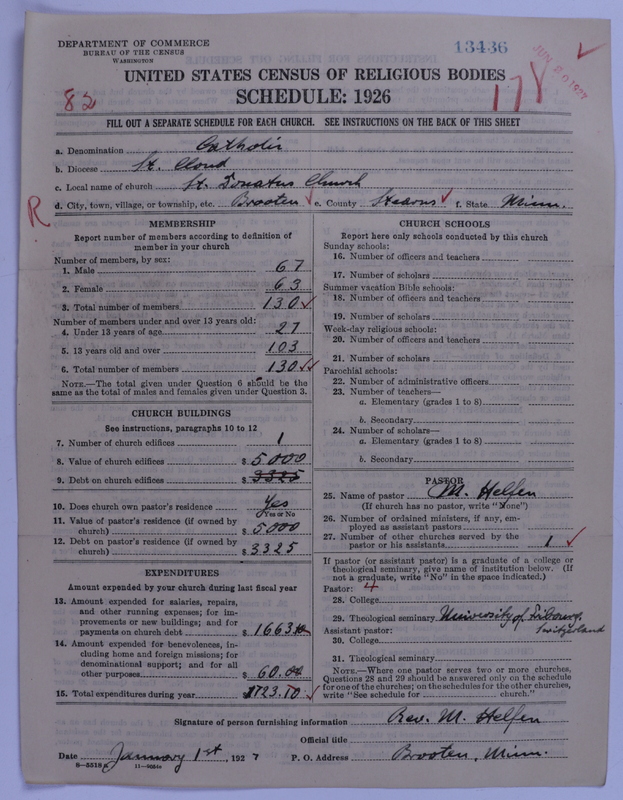 DEPARTMENT OF COMMERCE
BUREAU OF THE CENSUS
WASHINGTON
13436
JUN 20 1927
UNITED STATES CENSUS OF RELIGIOUS BODIES
178
82
SCHEDULE: 1926
FILL OUT A SEPARATE SCHEDULE FOR EACH CHURCH. SEE INSTRUCTIONS ON THE BACK OF THIS SHEET
a. Denomination Catholic
b. Diocese St. Cloud
c. Local name of church St. Donatus Church
R
d. City, town, village, or township, etc. Brooten e. County Stearns f. State Minn.
MEMBERSHIP
Report number of members according to definition of
member in your church
Number of members, by sex:
1. Male 67
2. Female 63
3. Total number of members 130
Number of members under and over 13 years old:
4. Under 13 years of age 27
5. 13 years old and over 103
6. Total number of members 130
NOTE.—The total given under Question 6 should be the
same as the total of males and females given under Question 3.
CHURCH BUILDINGS
See instructions, paragraphs 10 to 12
7. Number of church edifices 1
8. Value of church edifices $ 5000
9. Debt on church edifices $ 3325
10. Does church own pastor's residence Yes
Yes or No
11. Value of pastor's residence (if owned by
church) $ 5000
12. Debt on pastor's residence (if owned by
church) $ 3325
EXPENDITURES
Amount expended by your church during last fiscal year
13. Amount expended for salaries, repairs,
and other running expenses; for im-
provements or new buildings; and for
payments on church debt $ 1663
14. Amount expended for benevolences, in-
cluding home and foreign missions; for
denominational support; and for all
other purposes $ 60.00
15. Total expenditures during year $ 1723.10
CHURCH SCHOOLS
Report here only schools conducted by this church
Sunday schools:
16. Number of officers and teachers
17. Number of scholars
Summer vacation Bible schools:
18. Number of officers and teachers
19. Number of scholars
Week-day religious schools:
20. Number of officers and teachers
21. Number of scholars
Parochial schools:
22. Number of administrative officers
23. Number of teachers—
a. Elementary (grades 1 to 8)
b. Secondary
24. Number of scholars—
a. Elementary (grades 1 to 8)
b. Secondary
PASTOR
25. Name of pastor M. Helfen
(If church has no pastor, write "None")
26. Number of ordained ministers, if any, em-
ployed as assistant pastors
27. Number of other churches served by the
pastor or his assistants 1
If pastor (or assistant pastor) is a graduate of a college or
theological seminary, give name of institution below. (If
not a graduate, write "No" in the space indicated.)
Pastor: 4
28. College
29. Theological seminary University of Fribourg,
Switzerland
Assistant pastor:
30. College
31. Theological seminary
NOTE.—Where one pastor serves two or more churches,
Questions 28 and 29 should be answered only on the schedule
for one of the churches; on the schedules for the other churches,
write "See schedule for church."
Signature of person furnishing information Rev. M. Helfen
Official title
Date January 1st, 1927 P. O. Address Brooten, Minn.
8—5518 a 11—9034